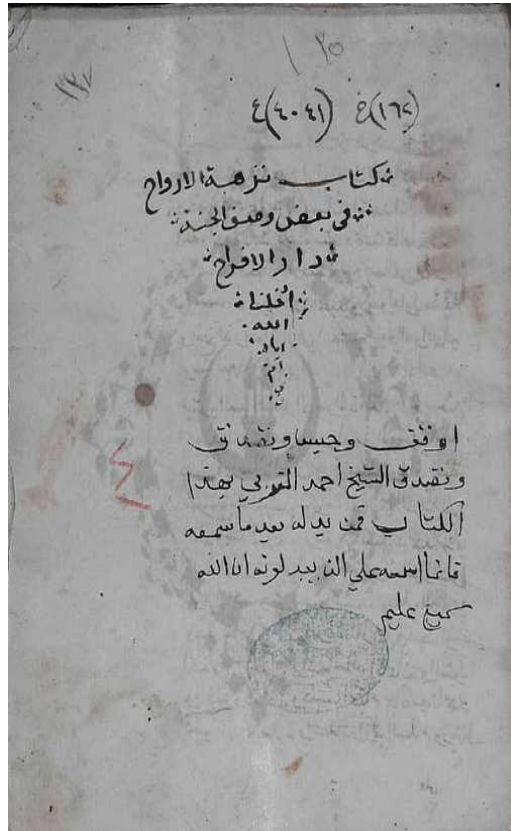 ١٣٥
١٣٧
(١٦٢)خ (٤٠٤١)ع
كتاب نزهة الارواح
في بعض وصف الجنة
دار الافراح
الله
امين
اوقف وحبس وتصدق
وتصدق الشيخ احمد بهذا
الكتاب فمن بدله بعد ما سمعه
فانما اسمه علي الذين يبدلونه ان الله
سميع عليم